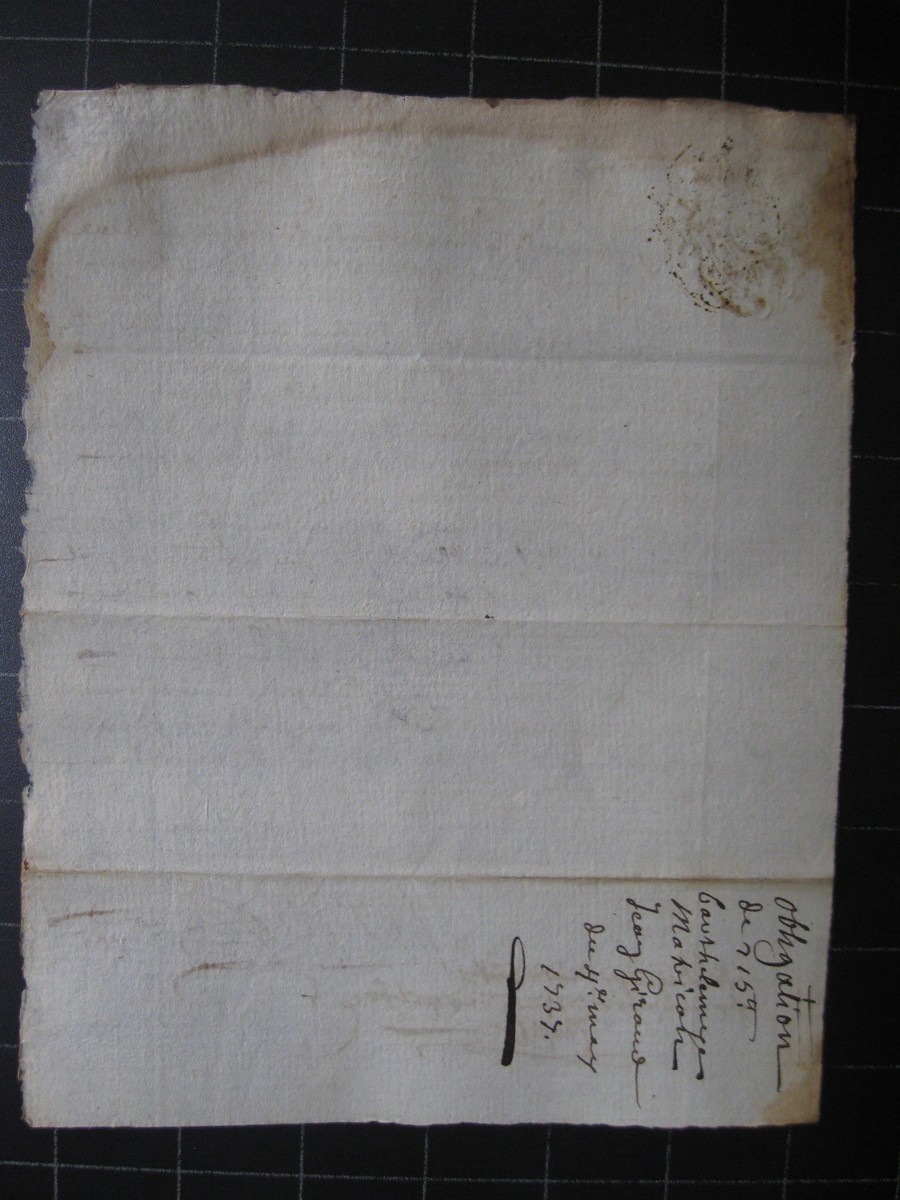 obligation
de 715ᵗᵗ
Barthelemye
Matricoli
Jean Giraud
du 4ᵉ may
1737.